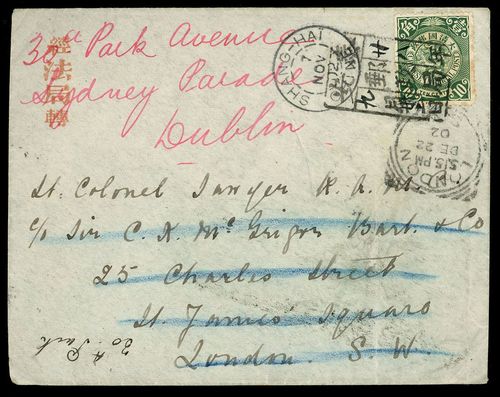 30A Park Avenue
Sydney Parade
Dublin
經法局轉
SHANG-HAI
7
NOV
02
LONDON
5.15.PM
DE 22
02
Lt. Colonel Sawyer R.A.M.
c/o Sir C. R. McGrigor Bart. & Co
25 Charles Street
St. James' Square
London. S.W.